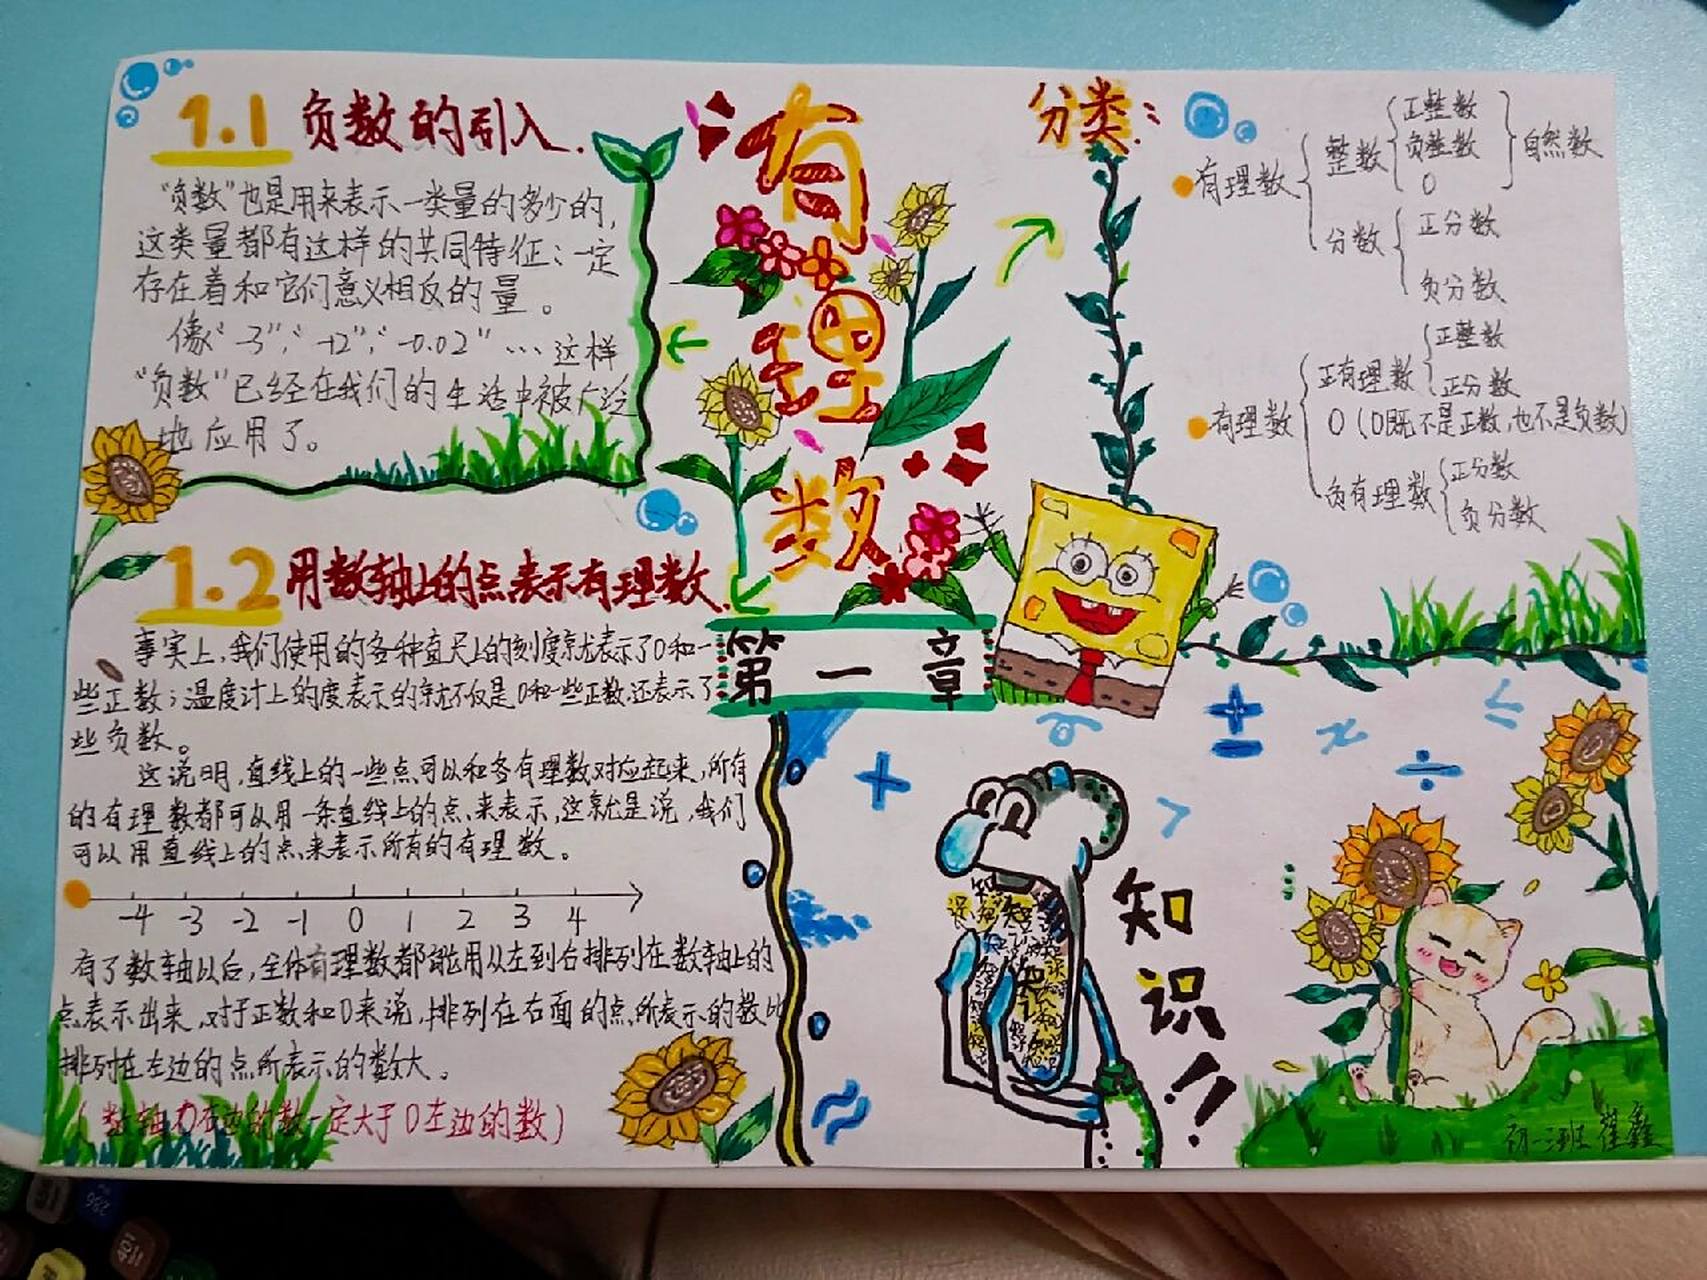 1.1 负数的引入.
“负数”也是用来表示一类量的多少的,
这类量都有这样的共同特征:一定
存在着和它们意义相反的量。
像“-3”,“-12”,“-0.02”…这样
“负数”已经在我们的生活中被广泛
地应用了。
有理数
第一章
分类:
有理数
整数
正整数
负整数
0
自然数
分数
正分数
负分数
有理数
正有理数
正整数
正分数
0(0既不是正数,也不是负数)
负有理数
正分数
负分数
1.2 用数轴上的点表示有理数.
事实上,我们使用的各种直尺上的刻度就表示了0和一
些正数;温度计上的度表示的就不仅是0和一些正数还表示了
些负数。
这说明,直线上的一些点可以和各有理数对应起来,所有
的有理数都可以用一条直线上的点来表示,这就是说,我们
可以用直线上的点来表示所有的有理数。
-4 -3 -2 -1 0 1 2 3 4
有了数轴以后,全体有理数都能用从左到右排列在数轴上的
点表示出来,对于正数和0来说,排列在右面的点所表示的数比
排列在左边的点所表示的数大。
(数轴0右边的数一定大于0左边的数)
+ ± x ≤ ÷ >
≈
知识!!
初一三班